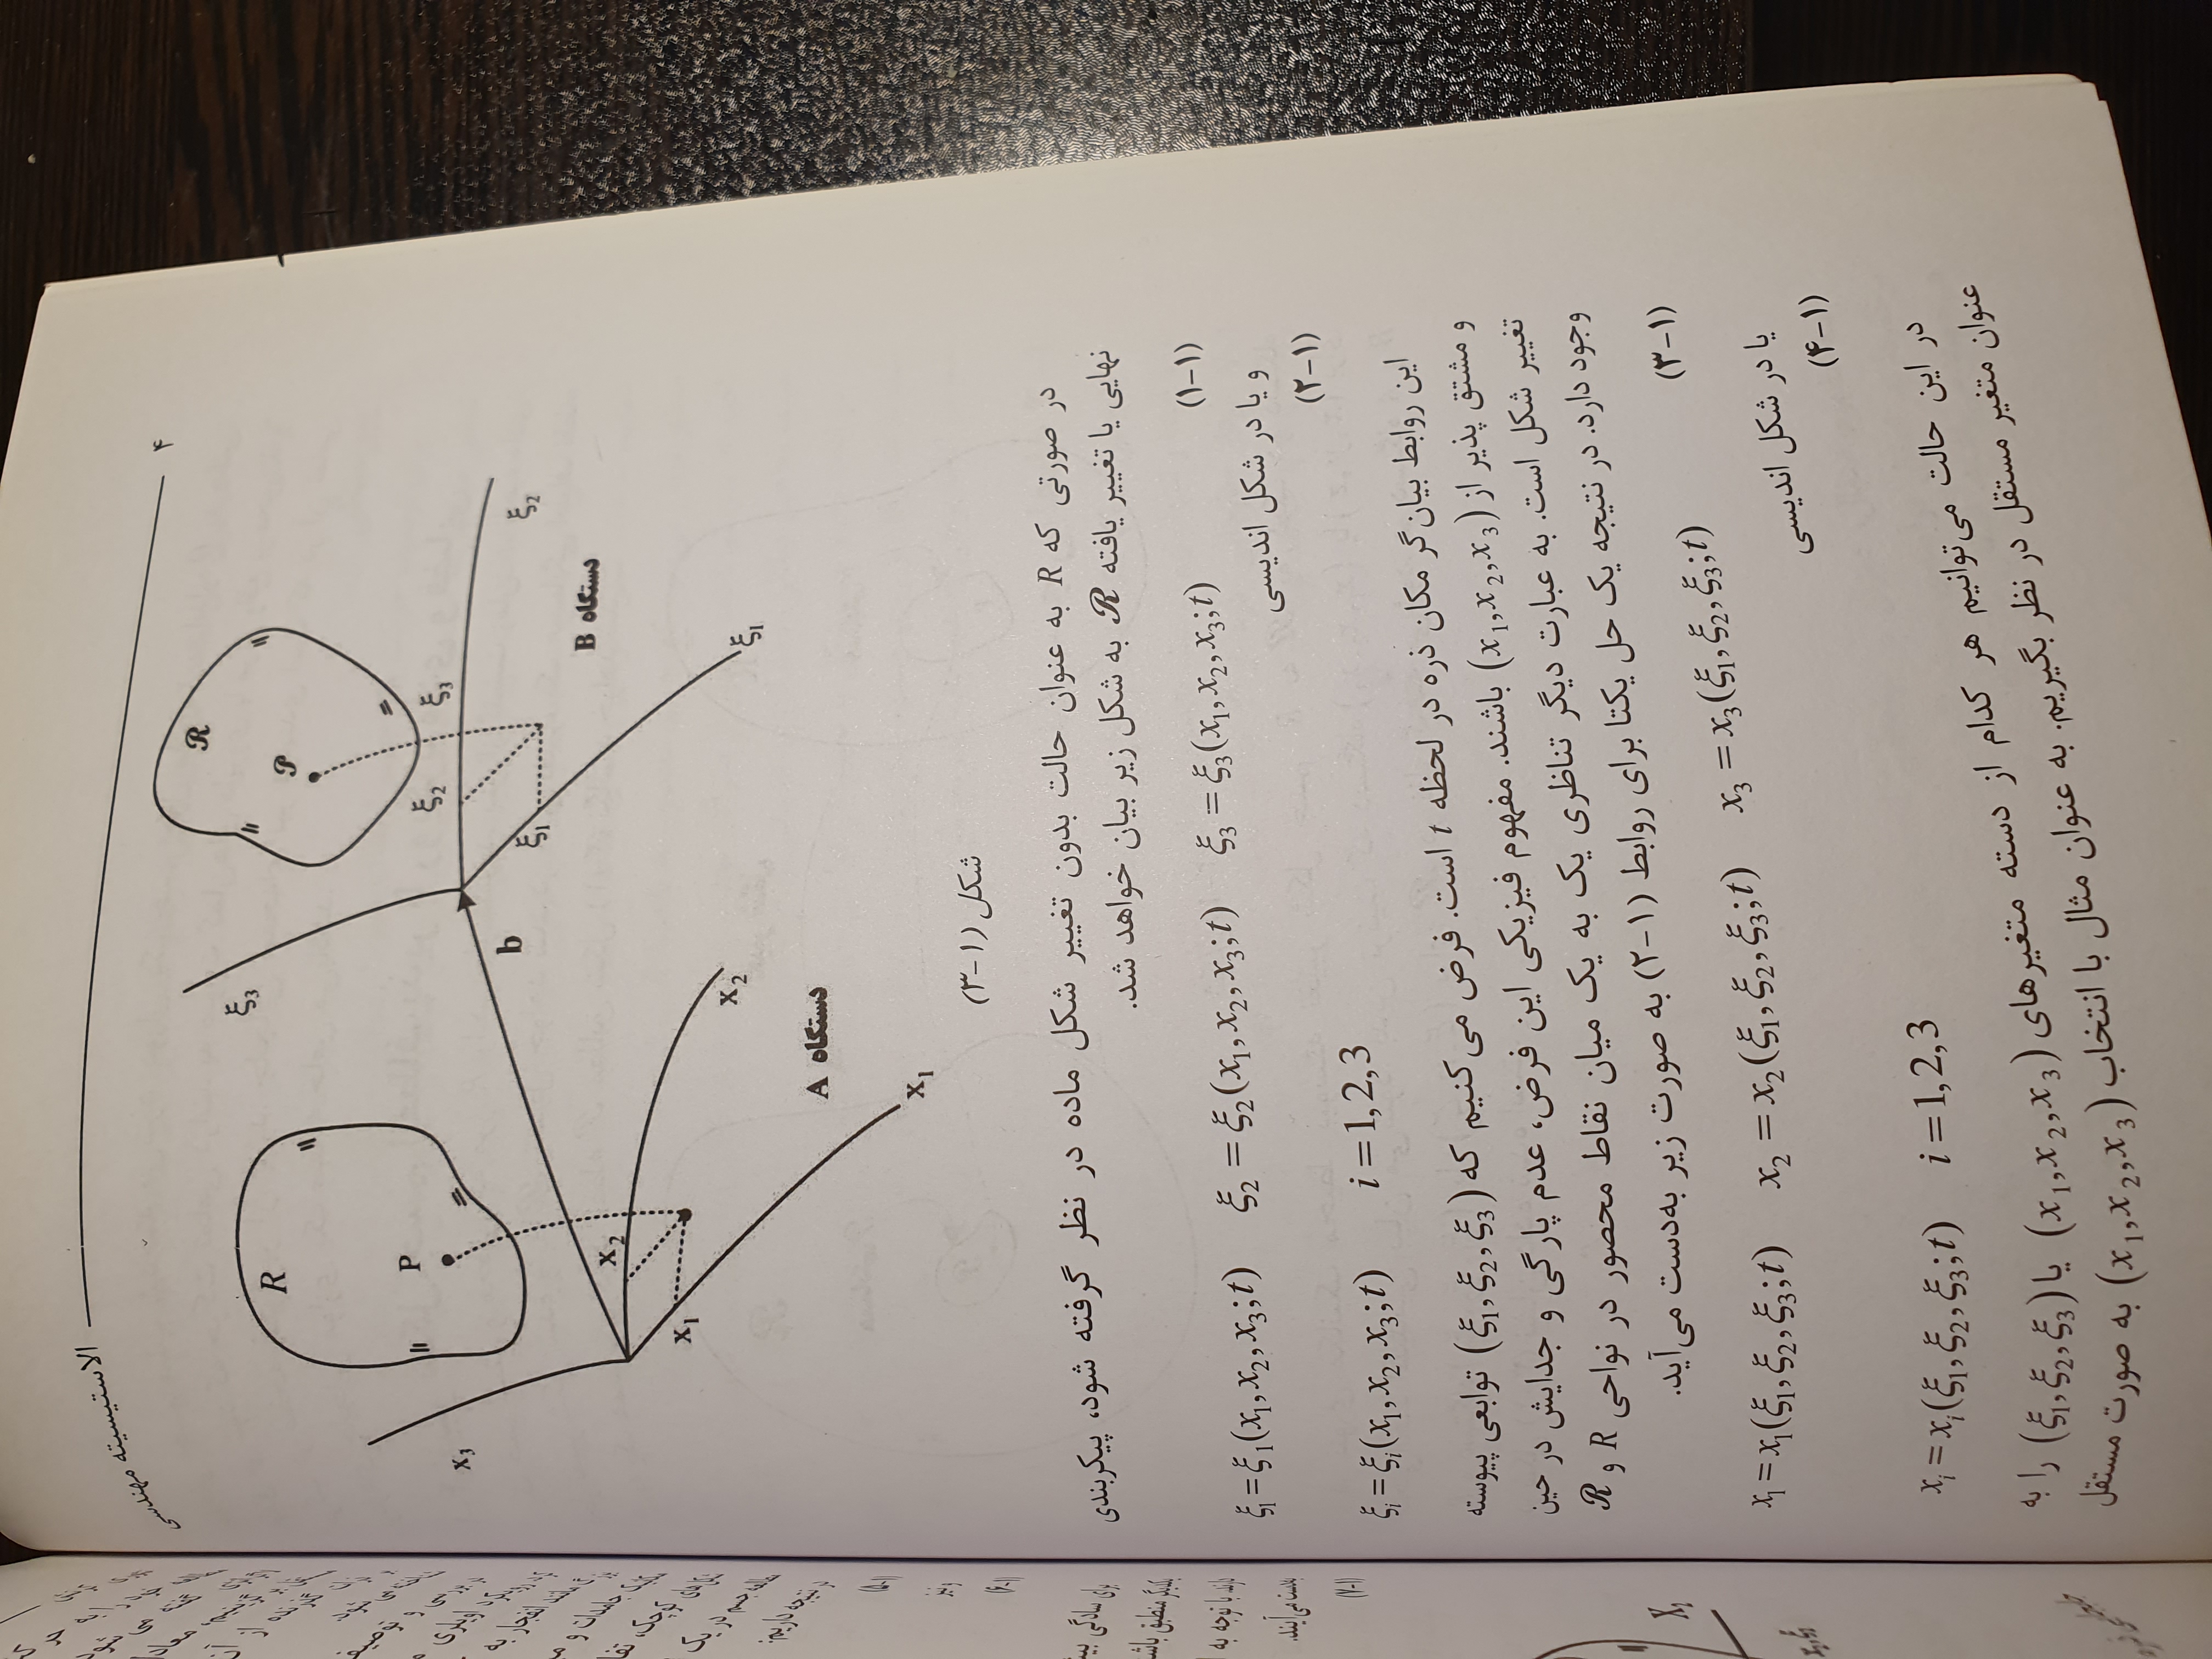 الاستیسیته مهندسی ۴
R
P
x₃
x₂
x₁
x₂
x₁
دستگاه A
b
ℛ
𝒫
ξ₃
ξ₂
ξ₃
ξ₁
ξ₂
ξ₁
دستگاه B
شکل (۱-۳)
در صورتی که R به عنوان حالت بدون تغییر شکل ماده در نظر گرفته شود، پیکربندی
نهایی یا تغییر یافته ℛ به شکل زیر بیان خواهد شد.
ξ₁ = ξ₁(x₁,x₂,x₃;t) ξ₂ = ξ₂(x₁,x₂,x₃;t) ξ₃ = ξ₃(x₁,x₂,x₃;t) (۱-۱)
و یا در شکل اندیسی
ξᵢ = ξᵢ(x₁,x₂,x₃;t) i = 1,2,3 (۲-۱)
این روابط بیان‌گر مکان ذره در لحظه t است. فرض می کنیم که (ξ₁,ξ₂,ξ₃) توابعی پیوسته
و مشتق پذیر از (x₁,x₂,x₃) باشند. مفهوم فیزیکی این فرض، عدم پارگی و جدایش در حین
تغییر شکل است. به عبارت دیگر تناظری یک به یک میان نقاط محصور در نواحی R و ℛ
وجود دارد. در نتیجه یک حل یکتا برای روابط (۱-۲) به صورت زیر به‌دست می‌آید.
x₁ = x₁(ξ₁,ξ₂,ξ₃;t) x₂ = x₂(ξ₁,ξ₂,ξ₃;t) x₃ = x₃(ξ₁,ξ₂,ξ₃;t) (۳-۱)
یا در شکل اندیسی
xᵢ = xᵢ(ξ₁,ξ₂,ξ₃;t) i = 1,2,3 (۴-۱)
در این حالت می‌توانیم هر کدام از دسته متغیرهای (x₁,x₂,x₃) یا (ξ₁,ξ₂,ξ₃) را به
عنوان متغیر مستقل در نظر بگیریم. به عنوان مثال با انتخاب (x₁,x₂,x₃) به صورت مستقل